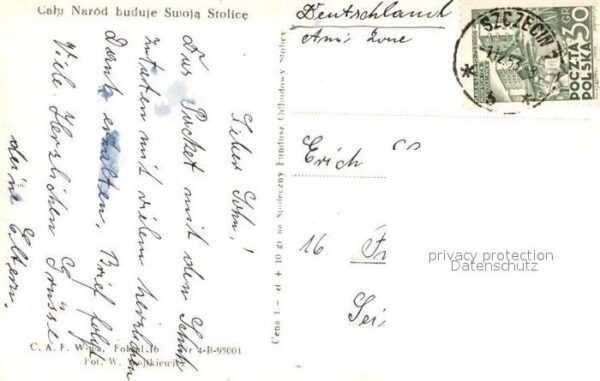 Cały Naród buduje Swoją Stolicę
Lieber Sohn!
Das Packet mit den Schuh
mit vielem herzlichen
Dank erhalten. Brief folgt
Viele Herzlichen Grüsse
deine Eltern.
C. A. F. W-wa. Fokal-16 Nr 4-B-95001
Fot. W.
Cena 1.— zł + 10 gr na Społeczny Fundusz Odbudowy Stolicy
Deutschland
Ami Zone
SZCZECIN
30 GR
POCZTA
POLSKA
Erich
16
privacy protection
Datenschutz